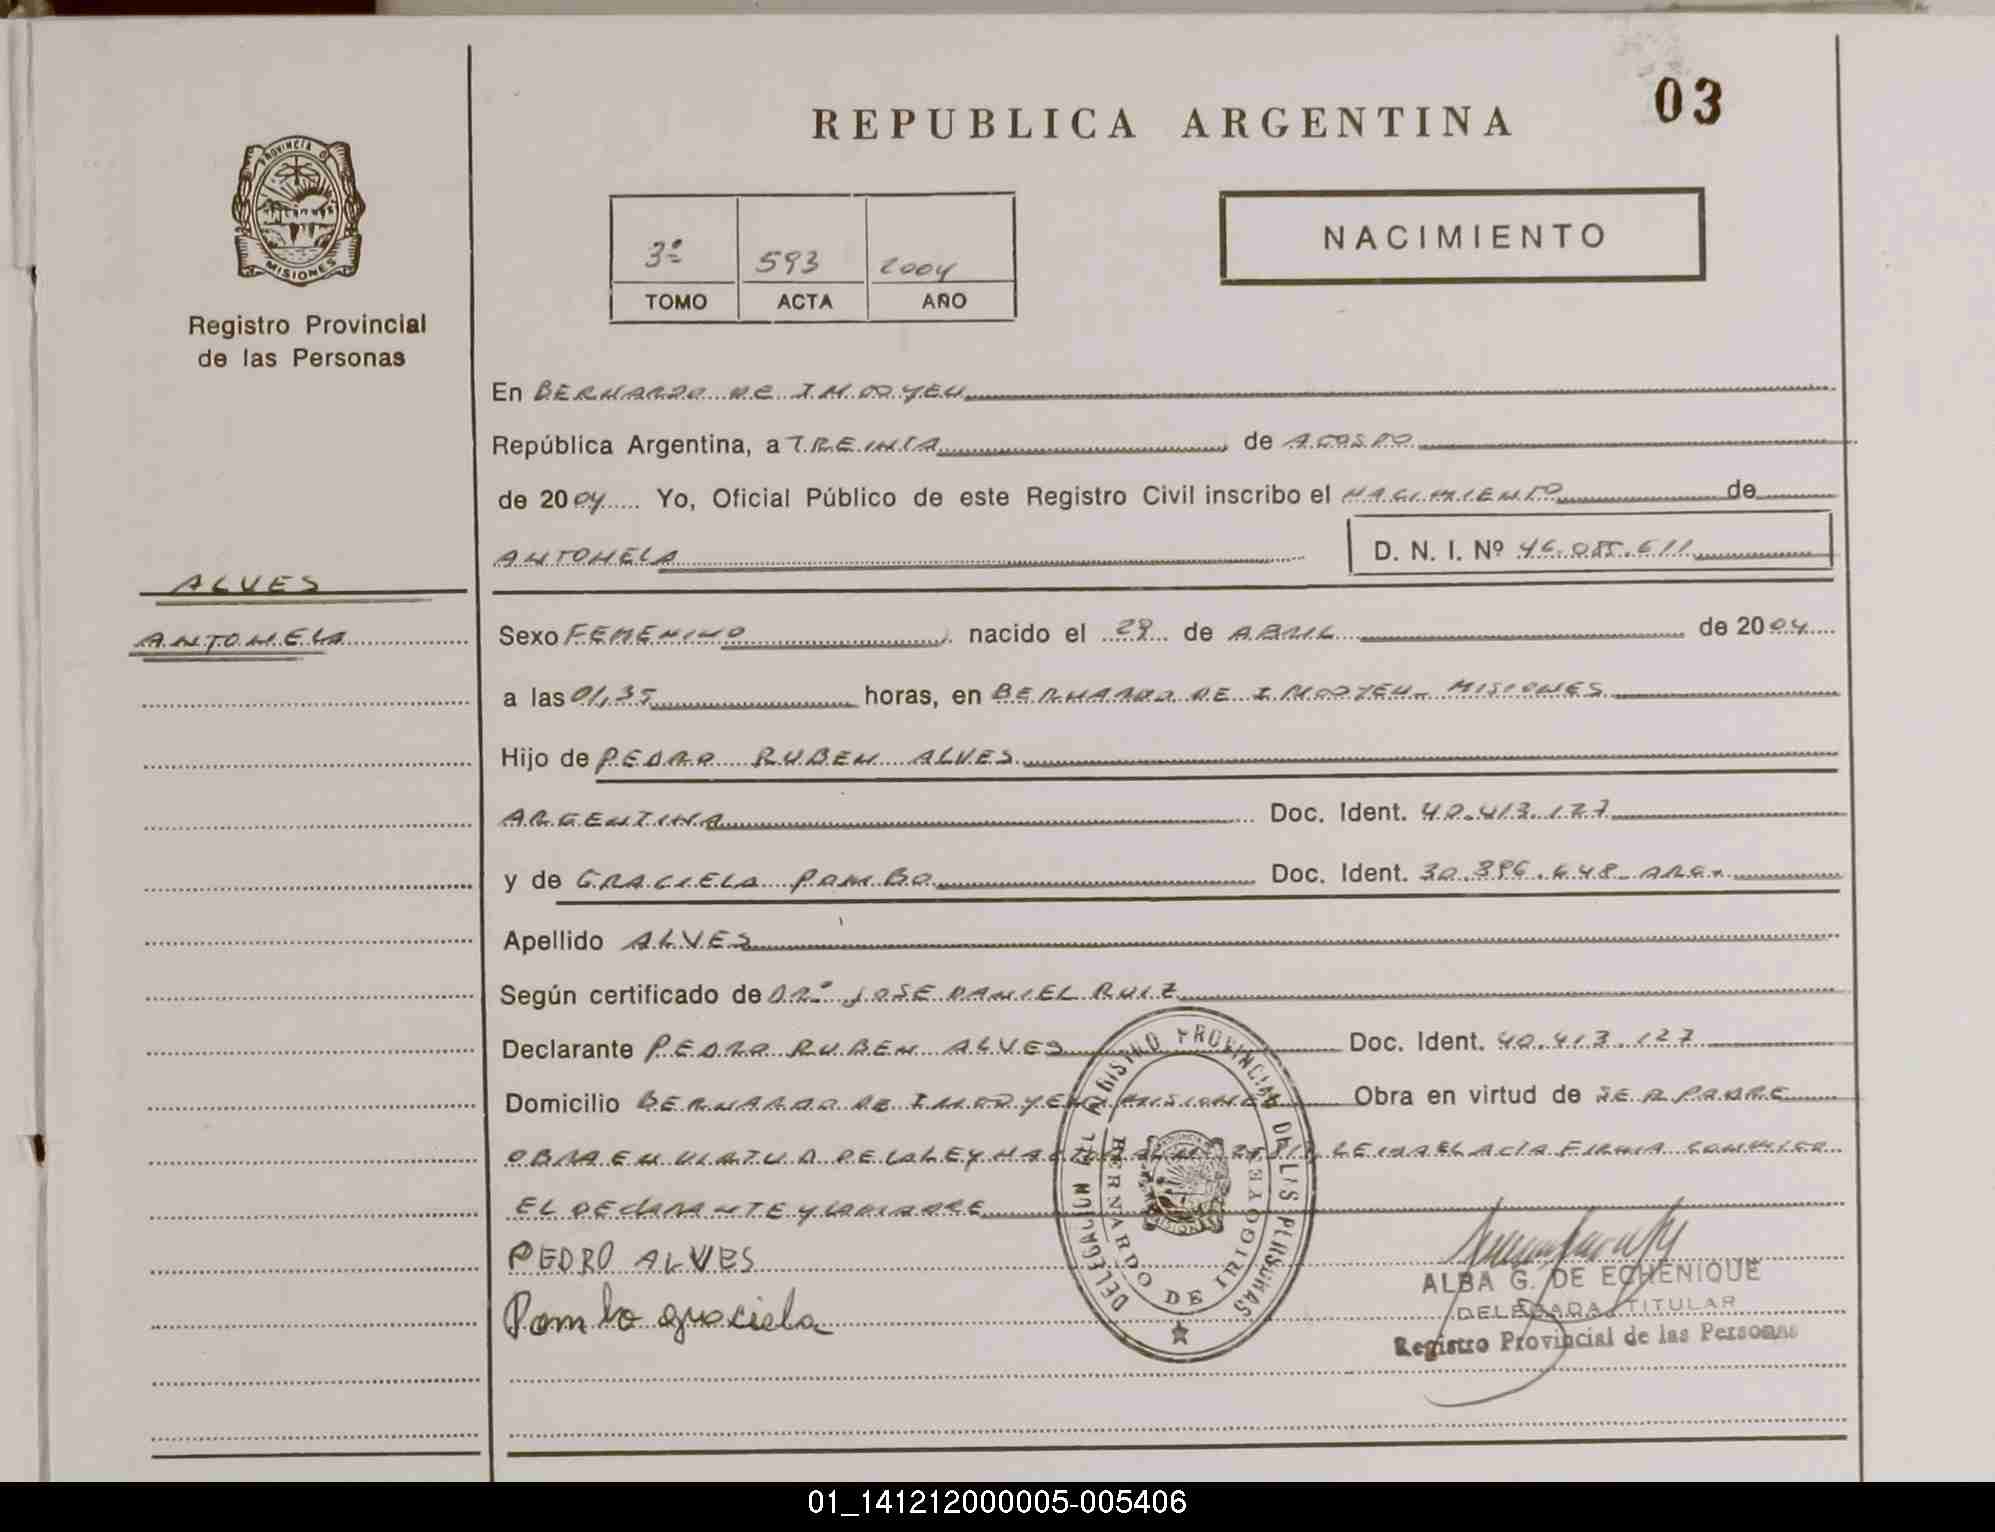 REPUBLICA ARGENTINA
03
PROVINCIA D
MISIONES
Registro Provincial
de las Personas
3º 593 2004
TOMO ACTA AÑO
NACIMIENTO
En BERNARDO DE IRIGOYEN
República Argentina, a TREINTA de AGOSTO
de 2004 Yo, Oficial Público de este Registro Civil inscribo el NACIMIENTO de
ANTONELA D. N. I. Nº 46.085.611
ALVES
ANTONELA
Sexo FEMENINO nacido el 29 de ABRIL de 2004
a las 01,35 horas, en BERNARDO DE IRIGOYEN - MISIONES
Hijo de PEDRO RUBEN ALVES
ARGENTINA Doc. Ident. 40.413.127
y de GRACIELA POMBO Doc. Ident. 30.396.648 - ARG.
Apellido ALVES
Según certificado de DRº JOSE DANIEL RUIZ
Declarante PEDRO RUBEN ALVES Doc. Ident. 40.413.127
Domicilio BERNARDO DE IRIGOYEN MISIONES Obra en virtud de SER PADRE
OBRA EN VIRTUD DE LA LEY NACIONAL LEIDA EL ACTA FIRMA CONMIGO
EL DECLARANTE Y LA MADRE
PEDRO ALVES
Pombo graciela
REGISTRO PROVINCIAL DE LAS PERSONAS
BERNARDO DE IRIGOYEN
ALBA G. DE ECHENIQUE
DELEGADA TITULAR
Registro Provincial de las Personas
01_141212000005-005406